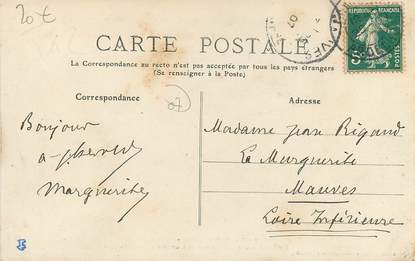 20€
CARTE POSTALE
La Correspondance au recto n'est pas acceptée par tous les pays étrangers
(Se renseigner à la Poste)
REPUBLIQUE FRANÇAISE
MAUVES
07
Correspondance
07
Bonjour
à
Marguerite
Adresse
Madame Jean Rigaud
La Marguerite
Mauves
Loire Inférieure